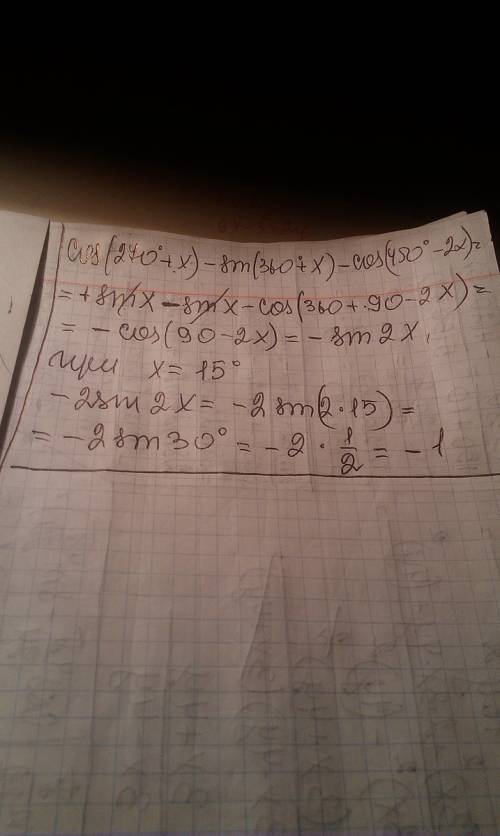 cos(270°+x)-sin(360°+x)-cos(450°-2x)=
=+sin x-sin x-cos(360+90-2x)=
=-cos(90-2x)=-sin2x,
при x=15°
-2sin2x=-2sin(2·15)=
=-2sin30°=-2·1/2=-1